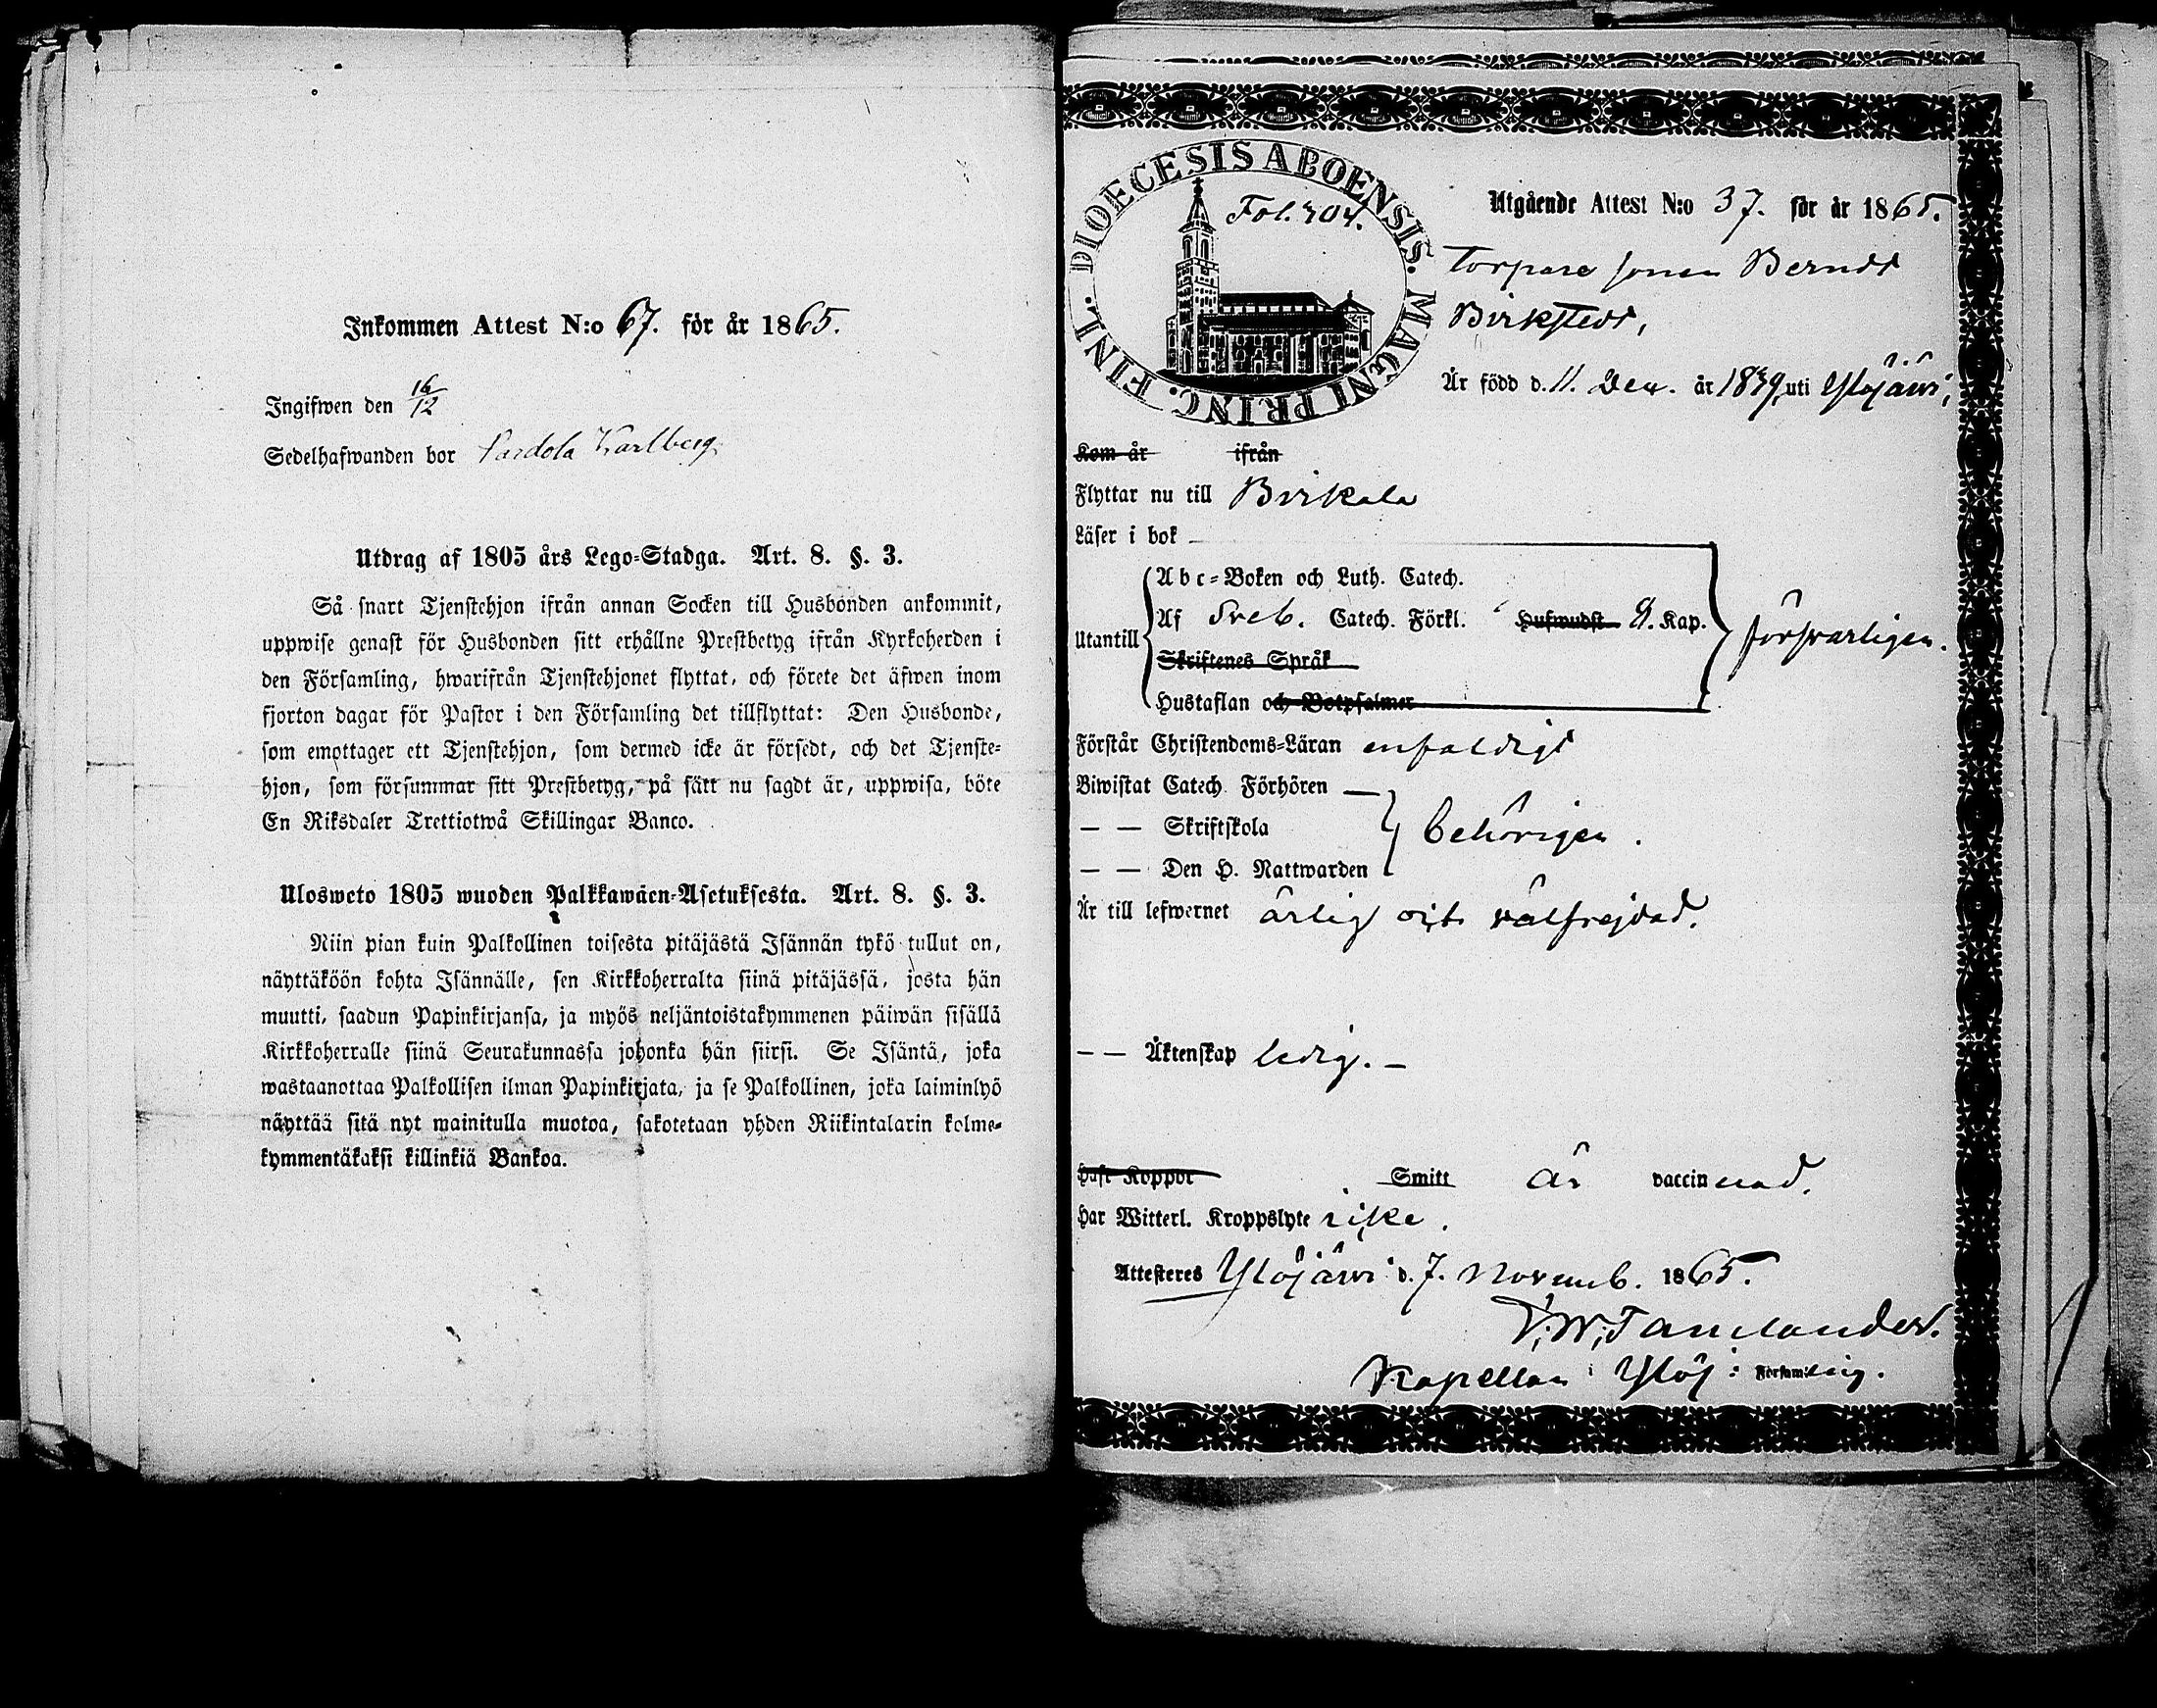 Inkommen Attest N:o 67. för år 1865.
Ingifwen den 16/12
Sedelhafwanden bor Pardola Karlberg
Utdrag af 1805 års Lego-Stadga. Art. 8. §. 3.
Så snart Tjenstehjon ifrån annan Socken till Husbonden ankommit,
uppwise genast för Husbonden sitt erhållne Prestbetyg ifrån Kyrkoherden i
den Församling, hwarifrån Tjenstehjonet flyttat, och förete det äfwen inom
fjorton dagar för Pastor i den Församling det tillflyttat: Den Husbonde,
som emottager ett Tjenstehjon, som dermed icke är försedt, och det Tjenste-
hjon, som försummar sitt Prestbetyg, på sätt nu sagdt är, uppwisa, böte
En Riksdaler Trettiotwå Skillingar Banco.
Ulosweto 1805 wuoden Palkkawäen-Asetuksesta. Art. 8. §. 3.
Niin pian kuin Palkollinen toisesta pitäjästä Isännän tykö tullut on,
näyttäköön kohta Isännälle, sen Kirkkoherralta siinä pitäjässä, josta hän
muutti, saadun Papinkirjansa, ja myös neljäntoistakymmenen päiwän sisällä
Kirkkoherralle siinä Seurakunnassa johonka hän siirsi. Se Isäntä, joka
wastaanottaa Palkollisen ilman Papinkirjata, ja se Palkollinen, joka laiminlyö
näyttää sitä nyt mainitulla muotoa, sakotetaan yhden Riikintalarin kolme-
kymmentäkaksi killinkiä Bankoa.
DIOECESIS ABOENSIS. MAGNI PRINC. FINL.
Fol. 404.
Utgående Attest N:o 37. för år 1865.
Torpare sonen Berndt
Birkstedt,
Är född d. 11. Dec. år 1839, uti Ylöjärvi;
Kom år ifrån
Flyttar nu till Birkala
Läser i bok
Abc-Boken och Luth. Catech.
Utantill Af Sveb. Catech. Förkl. Hufwudst. Kap. försvarligen.
Skriftenes Språk
Hustaflan och Botpsalmer
Förstår Christendoms-Läran enfaldigt
Biwistat Catech. Förhören
— — Skriftskola behörigen.
— — Den H. Nattwarden
Är till lefwernet ärlig och välfrejdad.
— — Äktenskap ledig. —
Haft Koppor Smitt är vaccinerad.
Har Witterl. Kroppslyte icke.
Attesteres Ylöjärvi d. 7. Novemb. 1865.
Tamlander.
Kapellan i Ylöj: Församling.